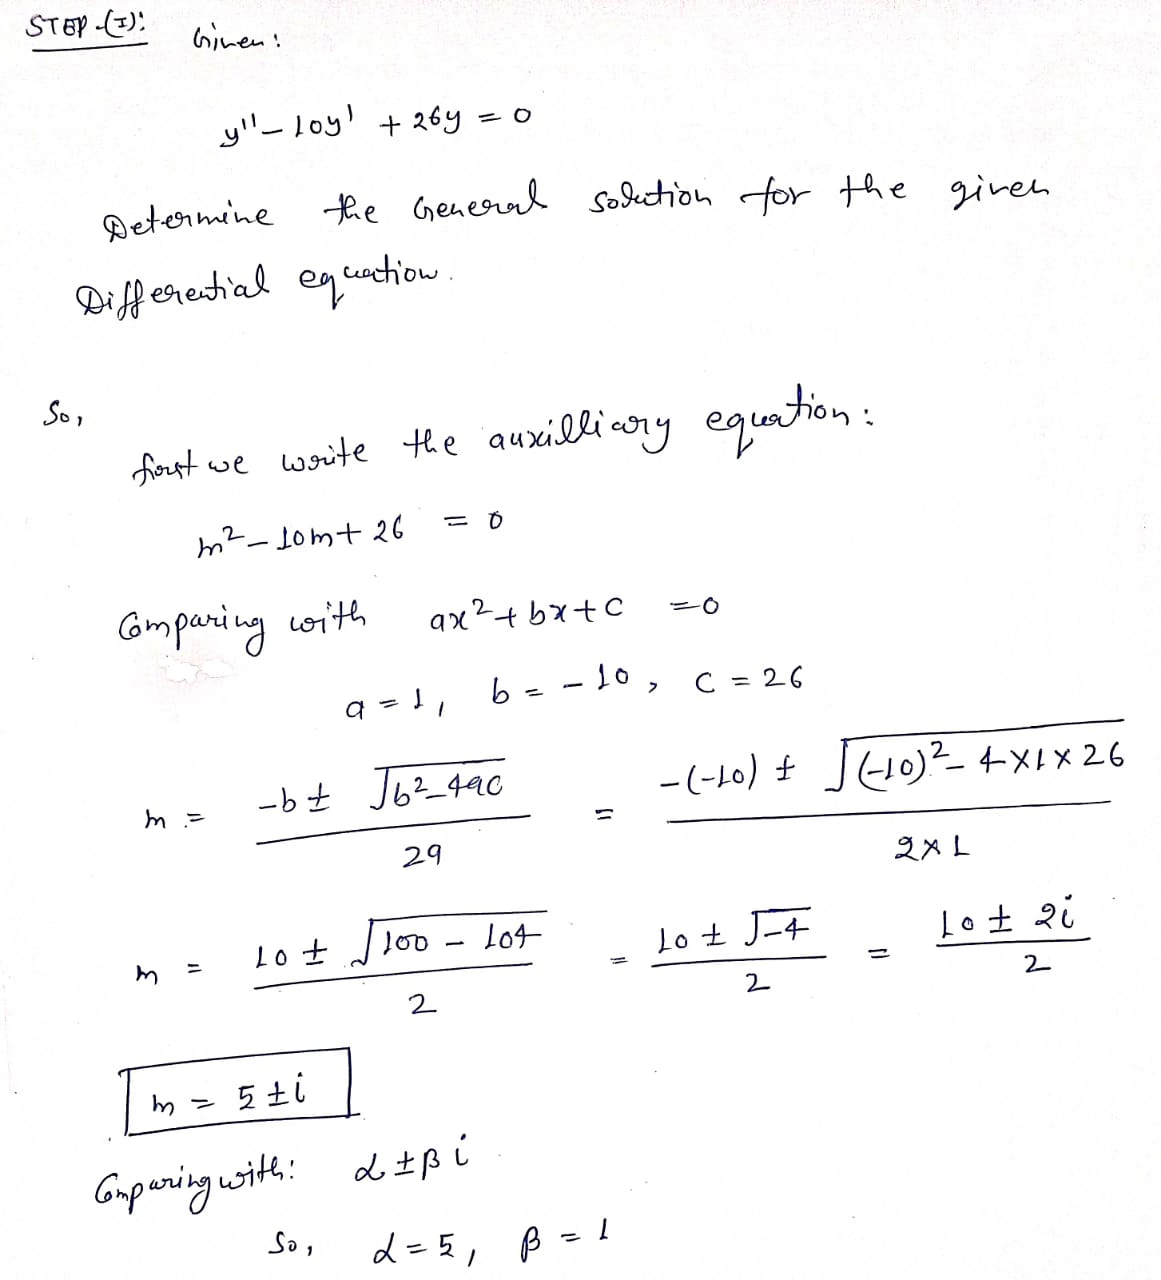 STEP-(I):
Given:
y'' - 10y' + 26y = 0
Determine the General solution for the given
Differential equation.
So,
first we write the auxilliary equation:
m² - 10m + 26 = 0
Comparing with ax² + bx + c = 0
a = 1, b = -10, c = 26
m = (-b ± √(b² - 4ac))/2a = (-(-10) ± √((-10)² - 4×1×26))/(2×1)
m = (10 ± √(100 - 104))/2 = (10 ± √-4)/2 = (10 ± 2i)/2
m = 5 ± i
Comparing with: α ± β i
So, α = 5, β = 1